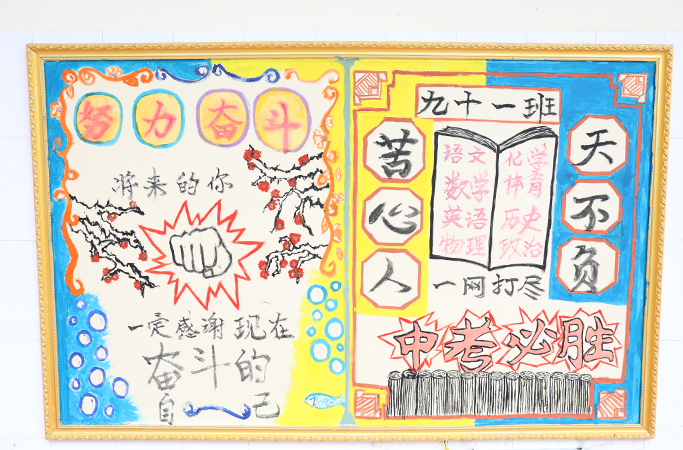 努力奋斗
将来的你
一定感谢现在
奋斗的
自己
九十一班
苦心人
语文
数学
英语
物理
化学
体育
历史
政治
天不负
一网打尽
中考必胜